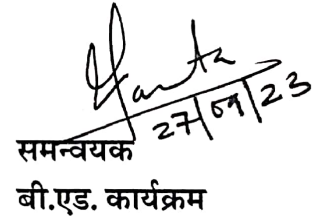 27/09/23
समन्वयक
बी.एड. कार्यक्रम